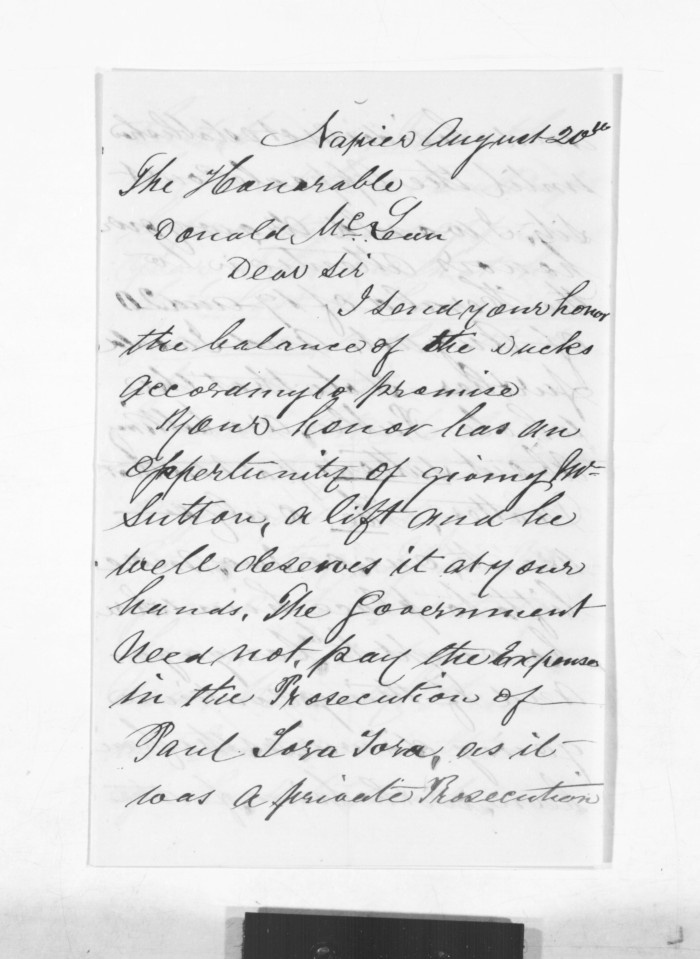 Napier August 20th
The Honorable
Donald McLean
Dear Sir
I send your honor
the balance of the Ducks
according to promise
Your honor has an
oppertunity of giving Mr
Sutton, a lift and he
well deserves it at your
hands. The Government
need not, pay the Expense
in the Prosecution of
Paul Tora Tora, as it
was a private Prosecution